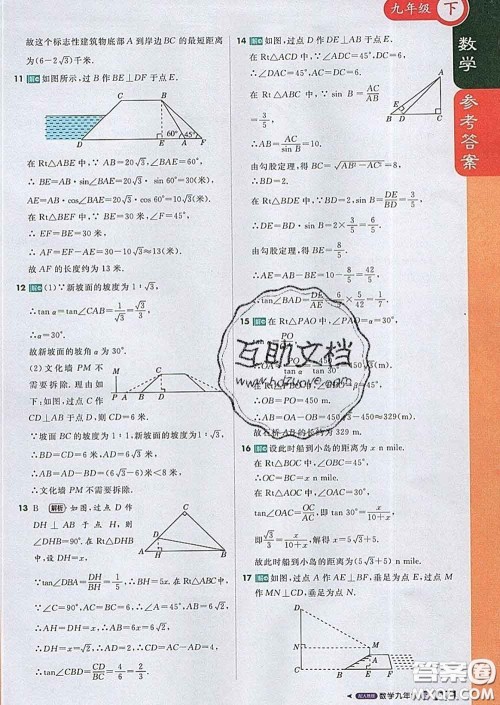 故这个标志性建筑物底部 A 到岸边 BC 的最短距离
为(6-2√3)千米.
11 如图所示,过 B 作 BE⊥DF 于点 E.
B
60° 45°
D E A F
在 Rt△ABE 中,∵ AB=20√3,∠BAE=60°,
∴ BE=AB·sin∠BAE=20√3·sin 60°=30(米).
AE=AB·cos∠BAE=20√3·cos 60°=10√3(米).
在 Rt△BEF 中,∵ BE=30 米,∠F=45°,
∴ EF=BE=30 米.
∴ AF=EF-AE=30-10√3≈13(米).
故 AF 的长度约为 13 米.
12 (1)∵新坡面的坡度为 1∶√3,
∴ tan α=tan∠CAB=1/√3=√3/3,
∴ α=30°.
故新坡面的坡角 α 为 30°.
(2)文化墙 PM 不
需要拆除. 理由如
下,如图,过点 C 作
CD⊥AB 于点 D,则 CD=6 米.
M C
P A B D
∵坡面 BC 的坡度为 1∶1,新坡面的坡度为 1∶√3,
∴ BD=CD=6 米,AD=6√3 米.
∴ AB=AD-BD=(6√3-6)米<8 米.
∴文化墙 PM 不需要拆除.
13 B 解析 如图,过点 D 作
DH⊥AB 个点 H,则
∠DHB=90°. 在 Rt△DHB
中,设 DH=x.
C
D
A H B
∵ tan∠DBA=DH/BH=1/5, ∴ BH=5x. 在 Rt△ABC 中,
∵∠C=90°,AC=BC=6, ∴∠A=45°, AB=6√2.
∴ AH=DH=x. ∴ x+5x=6√2, ∴ x=√2.
∴ AH=DH=√2, ∴ AD=2. ∴ CD=AC-AD=4.
∴ tan∠CBD=CD/BC=4/6=2/3.
14 如图,过点 D 作 DE⊥AB 于点 E.
在 Rt△ADC 中,∵∠C=90°,∠ADC=45°,
∴∠DAC=45°. ∴ AC=DC=6.
在 Rt△ABC 中,∵ sin B=AC/AB=
3/5,
∴ AB=AC/sin B=10.
A
E
B D C
由勾股定理,得 BC=√(AB²-AC²)=8.
∴ BD=2.
在 Rt△BDE 中,sin B=DE/BD=3/5, ∴ DE=2×3/5=6/5.
由勾股定理,得 BE=8/5.
∴ AE=AB-BE=10-8/5=42/5.
∴ tan∠BAD=DE/AE=6/5×5/42=1/7.
15 在 Rt△PAO 中,∠PAO=30°
∴ OB=PO=450(m).
∴ AB=OA-OB=450√3-450≈329(m).
故石桥 AB 的长约为 329 m.
16 设此时船到小岛的距离为 x n mile.
在 Rt△OBC 中,∠OBC=45°,
∴ OC=BC=x n mile.
在 Rt△AOC 中,∠OAC=30°,
∵ tan∠OAC=OC/AC, ∴ tan 30°=x/(10+x),
即√3/3=x/(10+x), 解得 x=5√3+5.
故此时船到小岛的距离为(5√3+5) n mile.
17 如图,过点 A 作 AE⊥BF,垂足为点 E,过点 M
作 MN⊥CD,垂足为点 N.
D
M
C A
九年级 下
数学
参考答案
互助文档
www.hdzuoye.com
配人教版 数学九年
答案圈